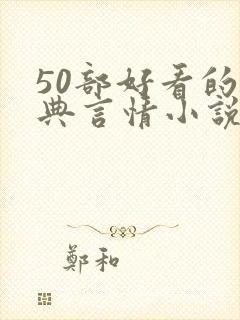 50部好看的
典言情小説
鄭和